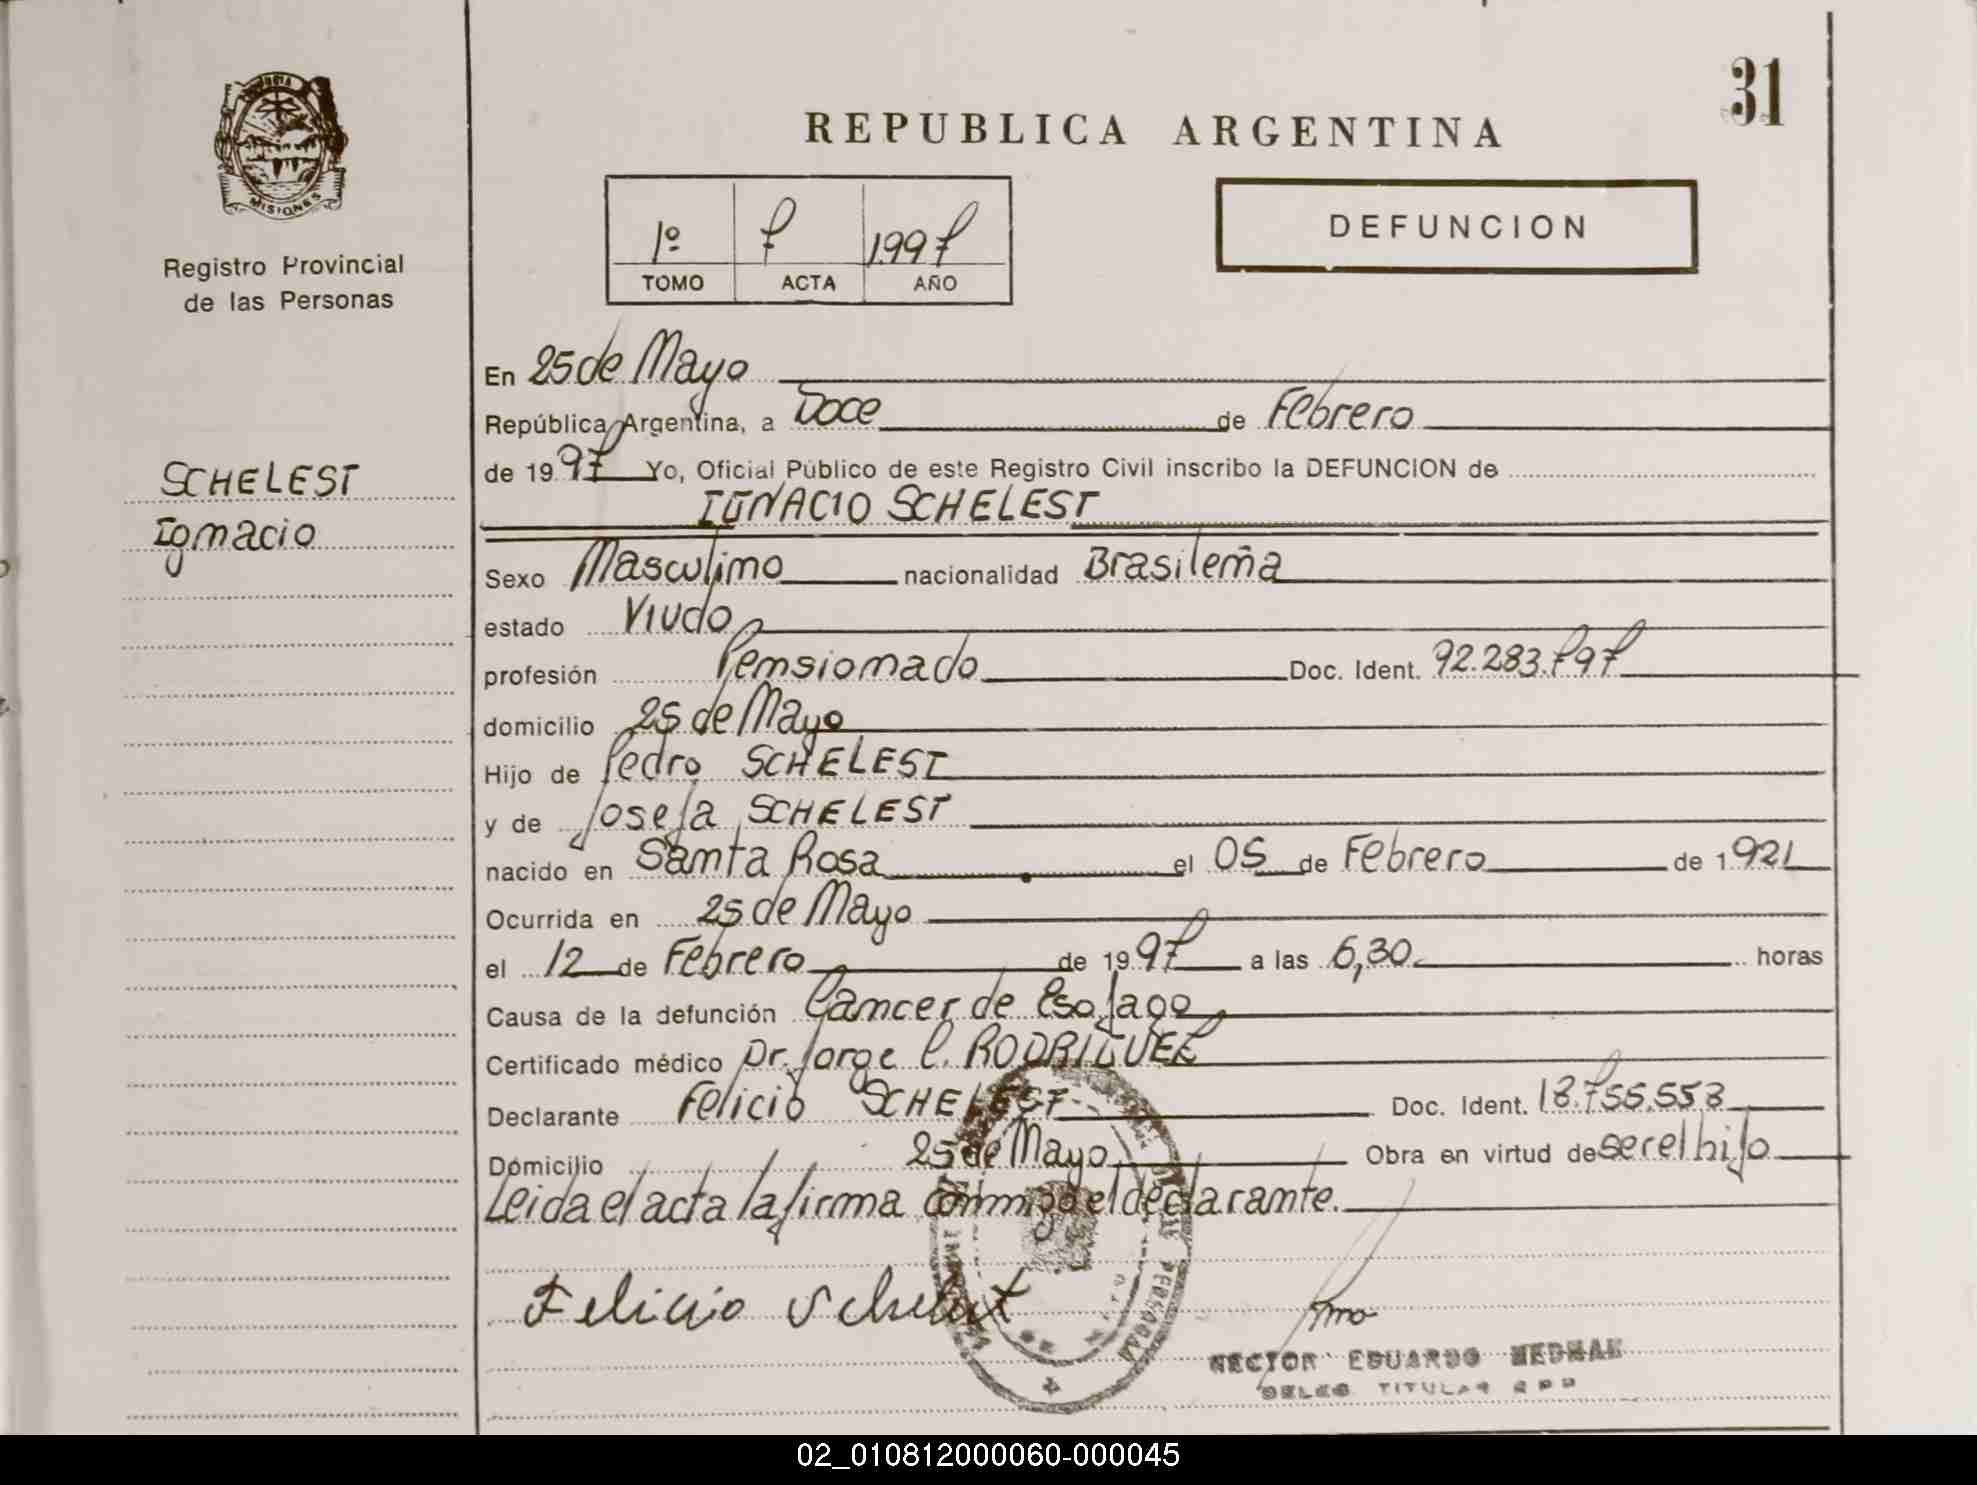 31
REPUBLICA ARGENTINA
MISIONES
Registro Provincial
de las Personas
1º 7 1.997
TOMO ACTA AÑO
DEFUNCION
SCHELEST
Ignacio
En 25 de Mayo
República Argentina, a Doce de Febrero
de 1997 Yo, Oficial Público de este Registro Civil inscribo la DEFUNCION de
IGNACIO SCHELEST
Sexo Masculino nacionalidad Brasileña
estado Viudo
profesión Pensionado Doc. Ident. 92.283.797
domicilio 25 de Mayo
Hijo de Pedro SCHELEST
y de Josefa SCHELEST
nacido en Santa Rosa el 05 de Febrero de 1.921
Ocurrida en 25 de Mayo
el 12 de Febrero de 1997 a las 6,30 horas
Causa de la defunción Cancer de Esofago
Certificado médico Dr. Jorge C. RODRIGUEZ
Declarante Felicio SCHELEST Doc. Ident. 18.755.553
Domicilio 25 de Mayo Obra en virtud de ser el hijo
Leida el acta la firma conmigo el declarante.
Felicio Schelest
HECTOR EDUARDO
TITULAR
02_010812000060-000045